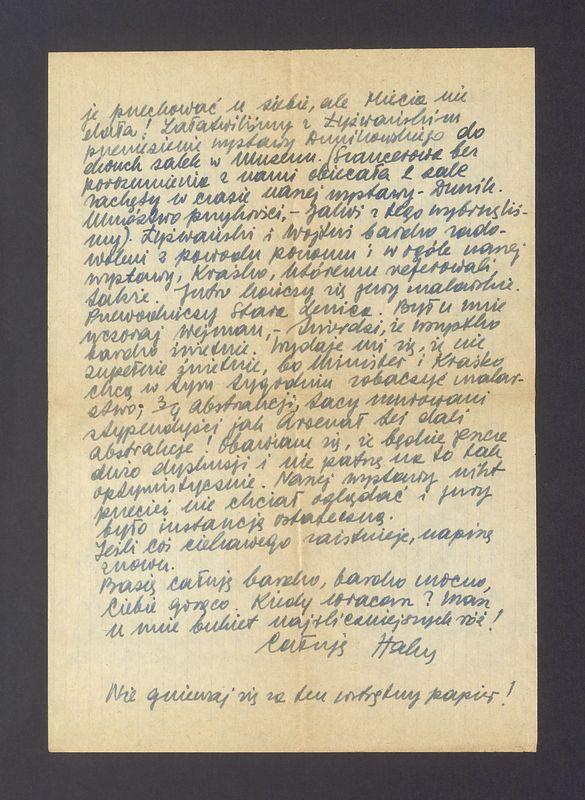 je przechować u siebie, ale Miecia nie
dała! Załatwiliśmy z Łyżwańskim
przeniesienie wystawy Dunikowskiego do
dwuch salek w Muzeum. (Grancerowa bez
porozumienia z nami obiecała 2 sale
zachęty w czasie naszej wystawy - Dunik.
Mnóstwo przykrości, - jakoś z tego wybrnęliś-
my). Łyżwański i Wojtuś bardzo zado-
woleni z powodu poziomu i w ogóle naszej
wystawy, Kraśko, któremu referowali,
także. Jutro kończy się jury malarskie.
Przewodniczy Stara Lenica. Był u mnie
wczoraj Wejman, - twierdzi, że wszystko
bardzo świetnie. Wydaje mi się, że nie
zupełnie świetnie, bo Minister i Kraśko
chcą w tym tygodniu zobaczyć malar-
stwo; 3/4 abstrakcji, tacy murowani
stypendyści jak Arsenał też dali
abstrakcje. Obawiam się, że będzie jeszcze
dużo dyskusji i nie patrzę na to tak
optymistycznie. Naszej wystawy nikt
przecież nie chciał oglądać i jury
było instancją ostateczną.
Jeśli coś ciekawego zaistnieje, napiszę
znowu.
Basię całuję bardzo, bardzo mocno,
Ciebie gorąco. Kiedy wracasz? Masz
u mnie bukiet najśliczniejszych róż!
Całuję Halny
Nie gniewaj się za ten wstrętny papier!